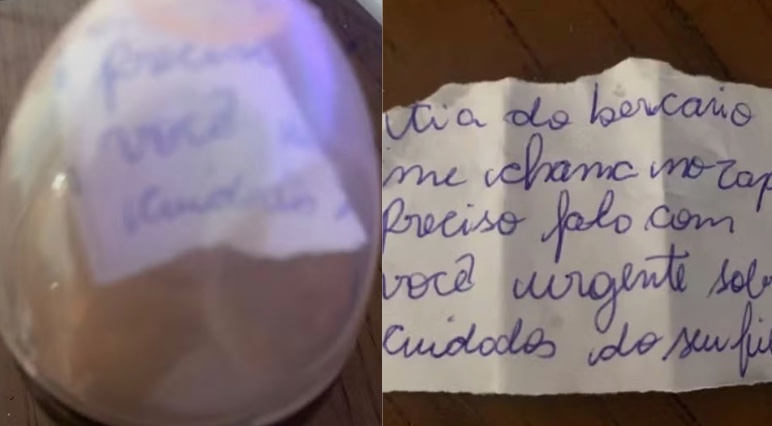 Preciso
você
cuidados
tia do bercario
me chama no zap
Preciso falo com
você urgente sob
cuidados do seu fil